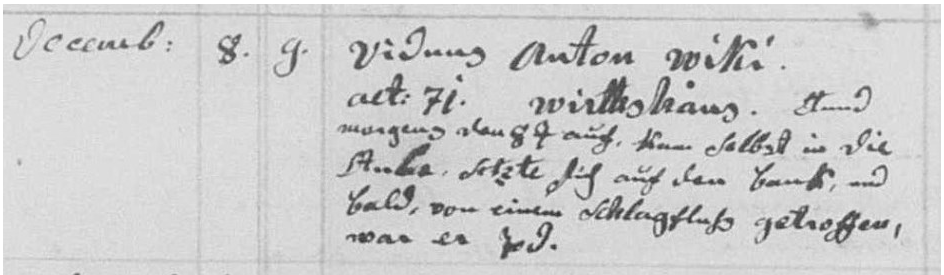 Decemb: 8. 9. Viduus Anton Wiki.
aet: 71. Wirthshaus. Stund
morgens den 8t auf, kam selbst in die
Stube, setzte sich auf den bank, und
bald, von einem Schlagfluß getroffen,
war er tod.